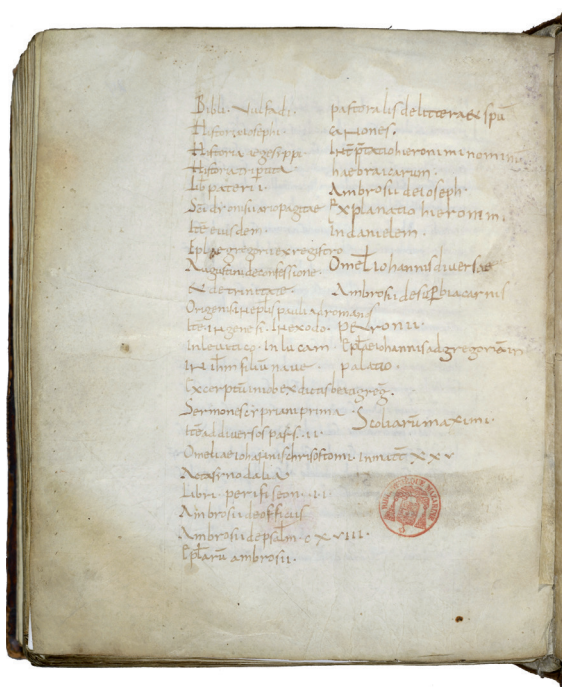 Bibli Vulfadi.
Historia iosephi.
Historia egesippi
Historia tripertita
Lib pateri I
Sci dionisii ariopagitae
Ite eiusdem.
Eplae gregorii ex registro
Augustini de confessione.
X de trinitate
Origenis in epla pauli ad romanos
Ite in genesi. In exodo.
In levitico. In lucam.
In ihm filiu nave
Excerptu in iob ex dictis beati greg.
Sermones cipriani prima
Ite ad diversos II
Omeliae iohannis chrisostomi. In matt XXV
Libri perifiseon. II
Ambrosii de officiis
Ambrosii de psalm. CXVIII.
Eplaru ambrosii.
pastoralis de littera et spu
canones.
Interptatio hieronimi nominum
haebraicarum.
Ambrosii de ioseph.
Explanatio hieronimi
in danielem.
Omel iohannis diversae
Ambrosii de
petronii
Eplae iohannis ad gregorium in
palatio.
Scoliarum maximi.